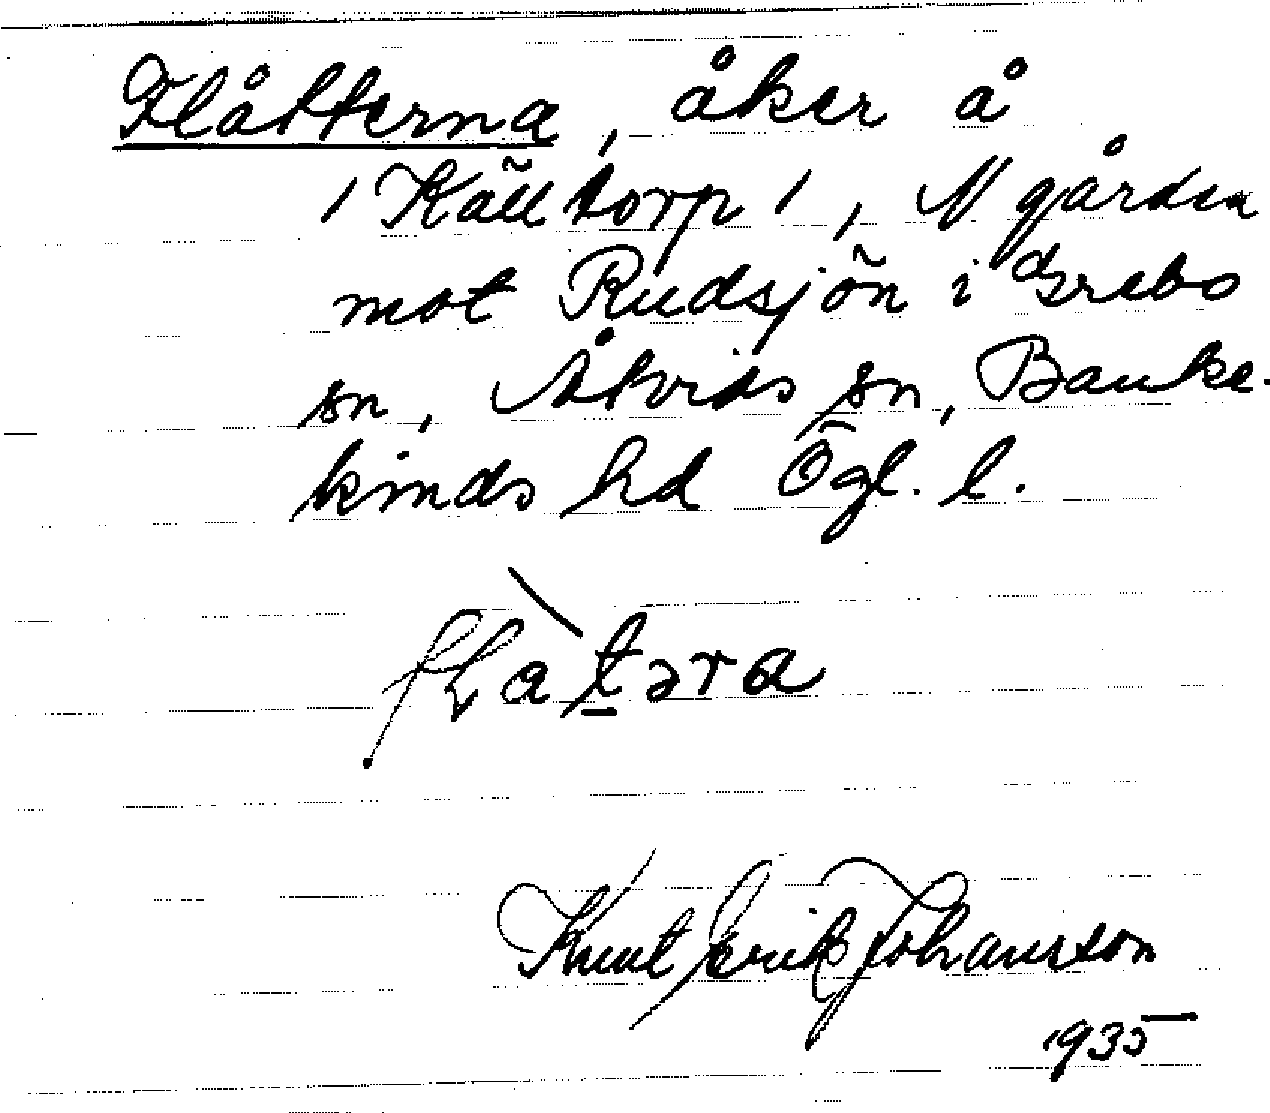 Flåtterna, åker å
/Källtorp/, N gården
mot Rudsjön i Grebo
sn, Åtvids sn, Banke-
kinds hd Ögl. l.
flàtəra
Knut Erik Johansson
1935